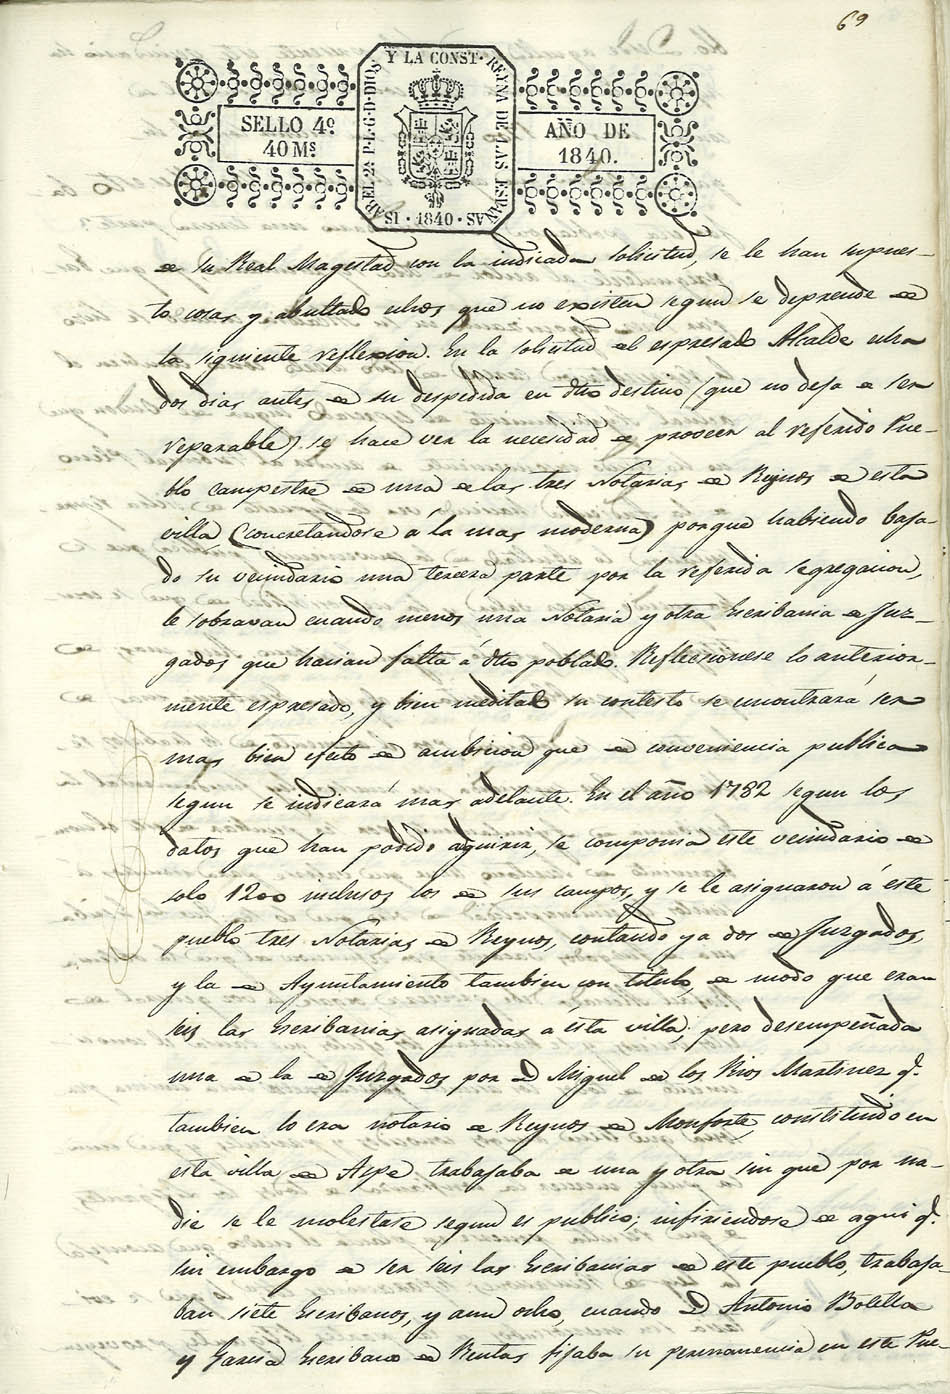 69
Y LA CONST. REYNA DE LAS ESPAÑAS
ISABEL 2ª P.L.G.D.DIOS
SELLO 4º
40 Mˢ
AÑO DE
1840.
1840
de su Real Magestad con la indicada solicitud, se le han supues-
to cosas y abultado otros que no existen segun se deprende de
la siguiente reflexion. En la solicitud del espresado Alcalde echa
dos dias antes de su despedida en dho destino (que no deja de ser
reparable) se hace ver la necesidad de proveer al referido Pue-
blo campestre de una de las tres Notarias de Reynos de esta
villa, (concretandose á la mas moderna) porque habiendo baja-
do su vecindario una tercera parte por la referida segregacion,
le sobravan cuando menos una Notaria y otra Escribania de Juz-
gados que hacian falta á dho poblado. Reflecsionese lo anterior-
mente espresado, y bien meditado su contesto se encontrará ser
mas bien efecto de ambicion que de conveniencia publica
segun se indicará mas adelante. En el año 1782 segun los
datos que han podido adquirir, se componia este vecindario de
solo 1200 inclusos los de sus campos, y se le asignaron á este
pueblo tres Notarias de Reynos, contando ya dos de Juzgados,
y la de Ayuntamiento tambien con titulo, de modo que eran
seis las Escribanias asignadas á ésta villa; pero desempeñada
una de la de Juzgados por D Miguel de los Rios Martinez q.
tambien lo era notario de Reynos de Monforte, constituido en
esta villa de Aspe trabajaba de una y otra sin que por na-
die se le molestase segun es publico; infiriendose de aqui q.
sin embargo de ser seis las Escribanias de este pueblo, trabaja-
ban siete Escribanos, y aun ocho, cuando D Antonio Botella
y Garcia Escribano de Rentas fijaba su permanencia en este Pue-